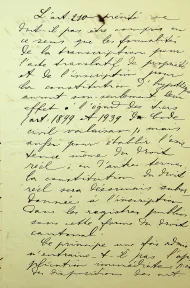 L'art 220 précité ne
doit pas être compris en
ce sens que les formalités
de la transcription pour
l'acte translatif de propriété
et de l'inscription pour
la constitution d'hypothèque
auront non seulement leur
effet à l'égard des tiers
(art 1899 et 1939 du Code
civil valaisan), mais
enfin pour établir l'exis
tence même du droit
réel; en d'autres termes
la constitution du droit
réel sera désormais subor
donnée à l'inscription
dans les registres publics
sous cette forme du droit
cantonal.
Ce principe une fois admis
n'entraîne-t-il pas l'ap
plication immédiate
des dispositions des art